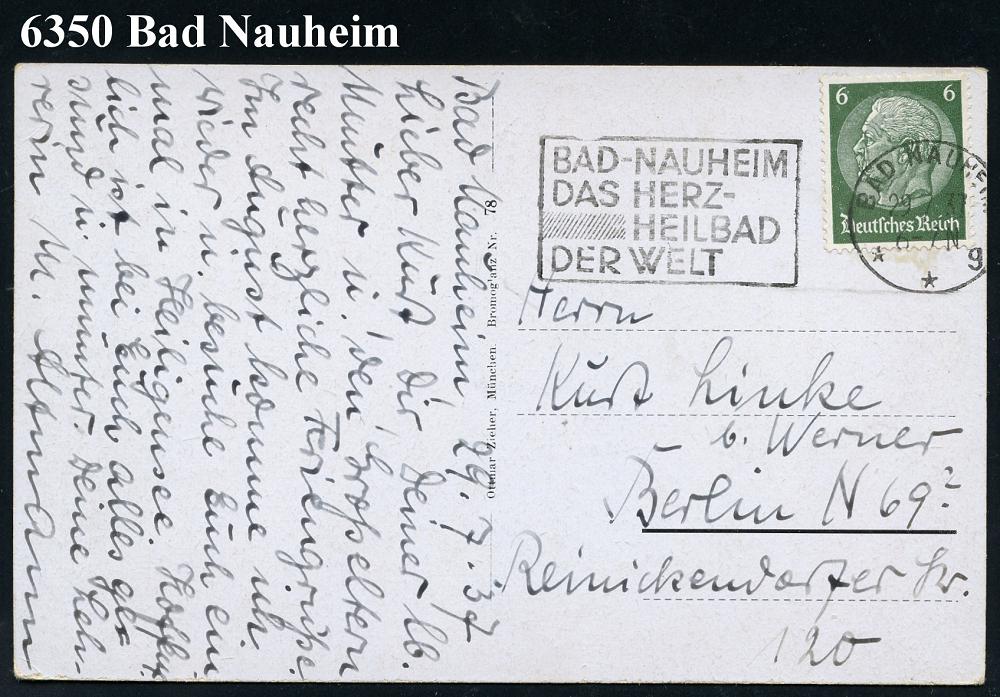 6350 Bad Nauheim
Bad Nauheim, 29. 7. 37
Lieber Kurt! Dir, Deiner lb.
Mutter u. den Großeltern
recht herzliche Feriengrüße.
Im August komme ich
wieder u. besuche Euch ein-
mal in Heiligensee. Hoffent-
lich ist bei Euch alles ge-
sund u. munter. Deine Leh-
rerin M. Altmann
Ottmar Zieher, München. Bromoglanz Nr. 78
BAD-NAUHEIM
DAS HERZ-
HEILBAD
DER WELT
6 6
Deutsches Reich
BAD NAUHEIM
29. 37
6-7 N
* * g
Herrn
Kurt Linke
- b. Werner
Berlin N 69²
Reinickendorfer Str.
120